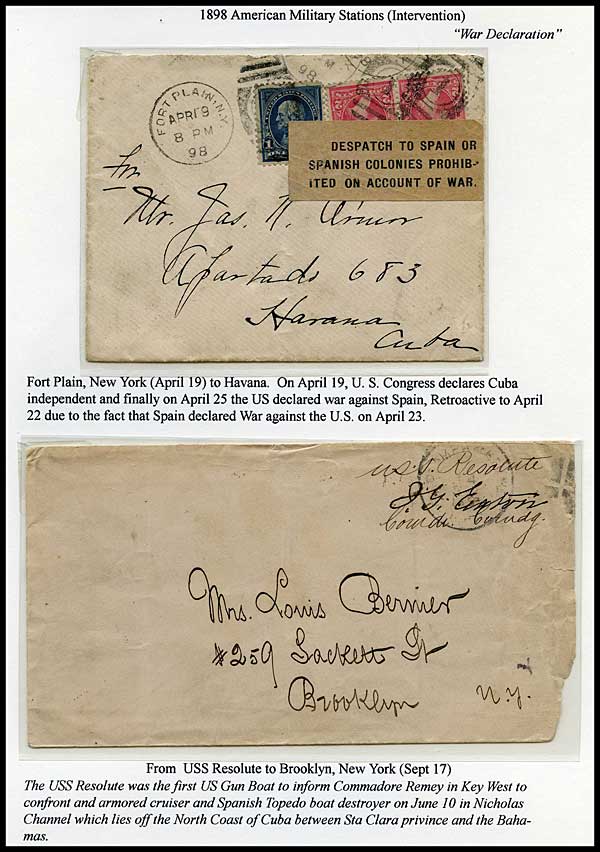 1898 American Military Stations (Intervention)
"War Declaration"
FORT PLAIN, N.Y.
APR 19
8 PM
98
98
1
2
2
DESPATCH TO SPAIN OR
SPANISH COLONIES PROHIB-
ITED ON ACCOUNT OF WAR.
For
Mr. Jas. N. Armor
Apartado 683
Havana
Cuba
Fort Plain, New York (April 19) to Havana. On April 19, U. S. Congress declares Cuba
independent and finally on April 25 the US declared war against Spain, Retroactive to April
22 due to the fact that Spain declared War against the U.S. on April 23.
U.S.S. Resolute
J G Eaton
Comdr. Comdg.
Mrs. Louis Bernier
#259 Sackett St
Brooklyn N.Y.
From USS Resolute to Brooklyn, New York (Sept 17)
The USS Resolute was the first US Gun Boat to inform Commadore Remey in Key West to
confront and armored cruiser and Spanish Topedo boat destroyer on June 10 in Nicholas
Channel which lies off the North Coast of Cuba between Sta Clara privince and the Baha-
mas.